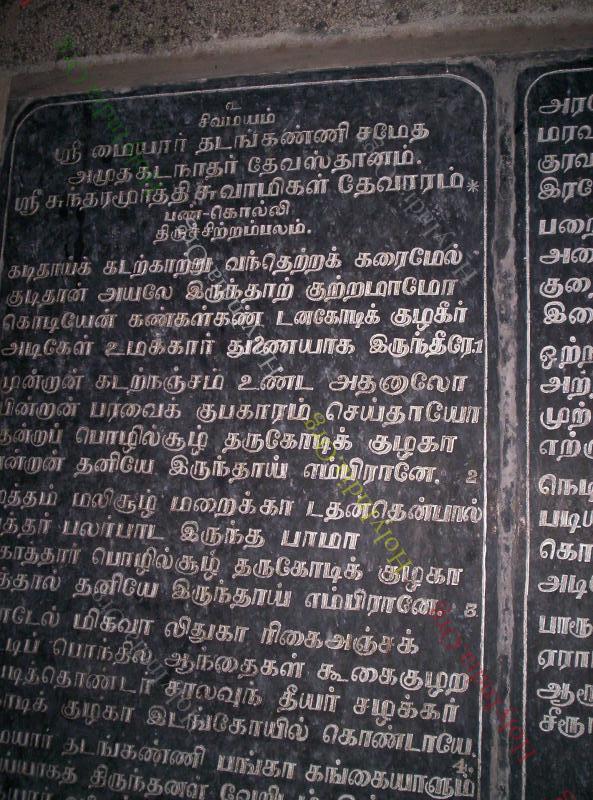 உ
சிவமயம்
ஸ்ரீ மையார் தடங்கண்ணி சமேத
அமுதகடநாதர் தேவஸ்தானம்.
ஸ்ரீ சுந்தரமூர்த்தி சுவாமிகள் தேவாரம்*
பண்-கொல்லி
திருச்சிற்றம்பலம்.
கடிதாயக் கடற்காற்று வந்தெற்றக் கரைமேல்
குடிதான் அயலே இருந்தாற் குற்றமாமோ
கொடியேன் கண்கள்கண் டனகோடிக் குழகீர்
அடிகேள் உமக்கார் துணையாக இருந்தீரே.1
முன்றான் கடற்நஞ்சம் உண்ட அதனாலோ
பின்றான் பரவைக் குபகாரம் செய்தாயோ
குன்றப் பொழில்சூழ் தருகோடிக் குழகா
என்றான் தனியே இருந்தாய் எம்பிரானே. 2
மத்தம் மலிசூழ் மறைக்கா டதன்தென்பால்
பத்தர் பலர்பாட இருந்த பரமா
கொத்தார் பொழில்சூழ் தருகோடிக் குழகா
எத்தால் தனியே இருந்தாய் எம்பிரானே. 3
காடேல் மிகவா லிதுகா ரிகைஅஞ்சக்
கூட்டிப் பொந்தில் ஆந்தைகள் கூகைகுழற
வேடித்தொண்டர் சாலவுந் தீயர் சழக்கர்
கோடிக் குழகா இடங்கோயில் கொண்டாயே.
4.
மையார் தடங்கண்ணி பங்கா கங்கையாளும்
மெய்யாகத் திருந்தனள் வேறிடம்
அரவே
மரவ
குரவ
இரவே
பறை
அறை
குறை
இறை
ஒற்ற
அற்ற
முற்ற
எற்று
நெடி
படிய
கொ
அடி
பாரூ
ஏரா
ஆரூ
சீரூ